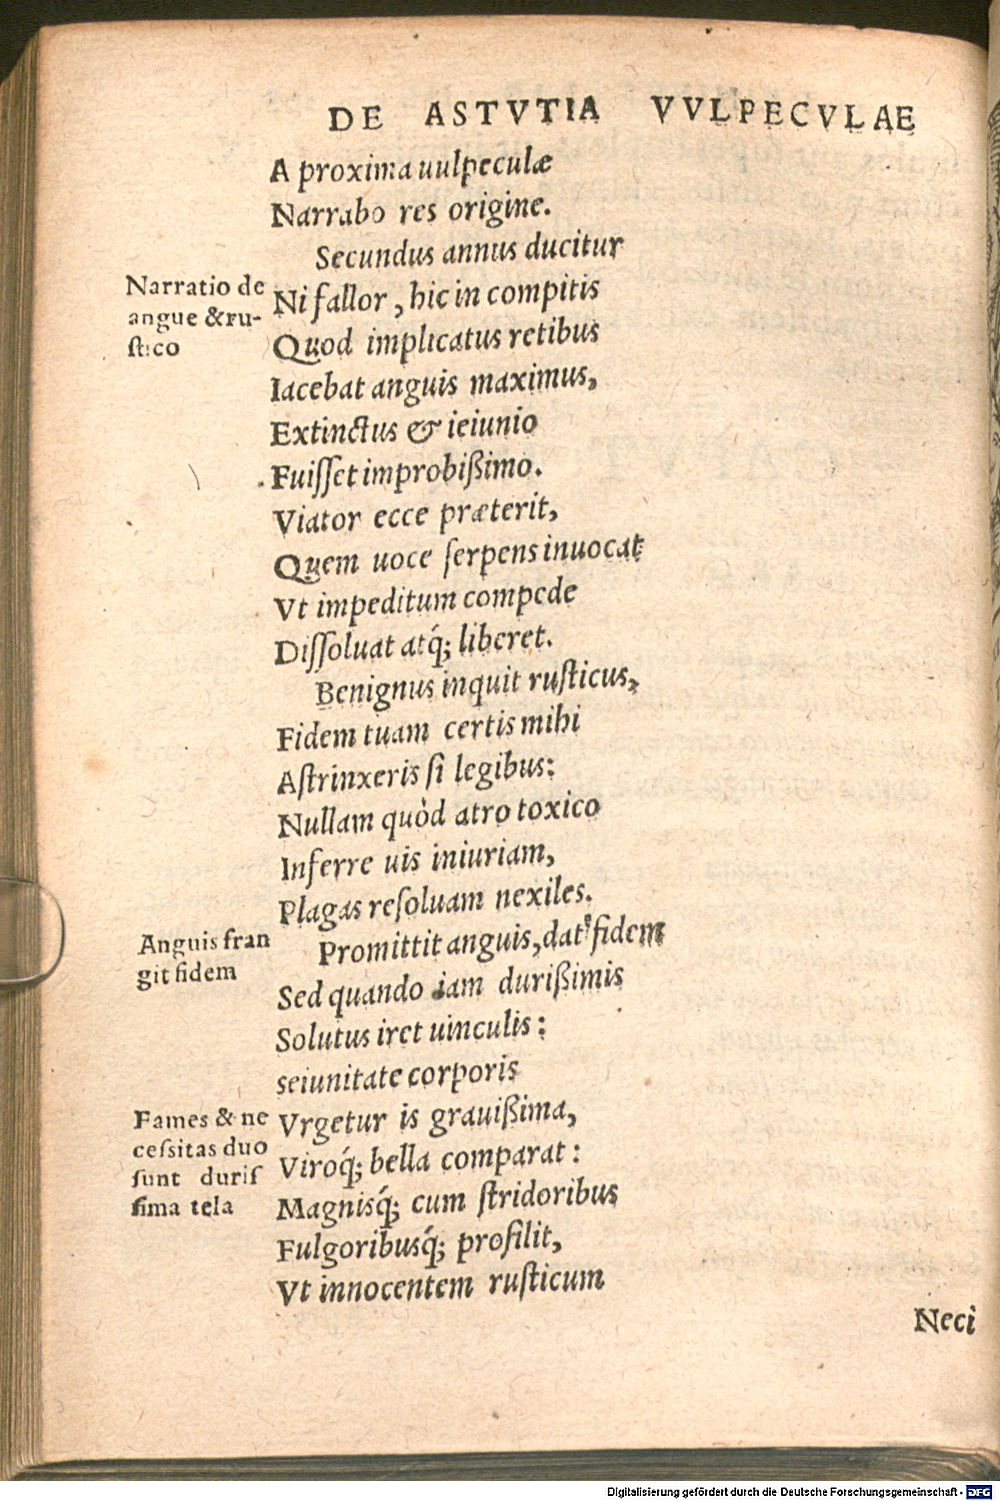 DE ASTVTIA VVLPECVLAE
A proxima uulpeculæ
Narrabo res origine.
Secundus annus ducitur
Narratio de
angue & ru-
stico
Ni fallor, hic in compitis
Quod implicatus retibus
Iacebat anguis maximus,
Extinctus & ieiunio
Fuisset improbißimo.
Viator ecce præterit,
Quem uoce serpens inuocat
Vt impeditum compede
Dissoluat atq́; liberet.
Benignus inquit rusticus,
Fidem tuam certis mihi
Astrinxeris si legibus:
Nullam quòd atro toxico
Inferre uis iniuriam,
Plagas resoluam nexiles.
Anguis fran
git fidem
Promittit anguis, dat fidem
Sed quando iam durißimis
Solutus iret uinculis:
seiunitate corporis
Fames & ne
cessitas duo
sunt duris
sima tela
Vrgetur is grauißima,
Viroq́; bella comparat:
Magnisq́; cum stridoribus
Fulgoribusq́; prosilit,
Vt innocentem rusticum
Neci
Digitalisierung gefördert durch die Deutsche Forschungsgemeinschaft - DFG